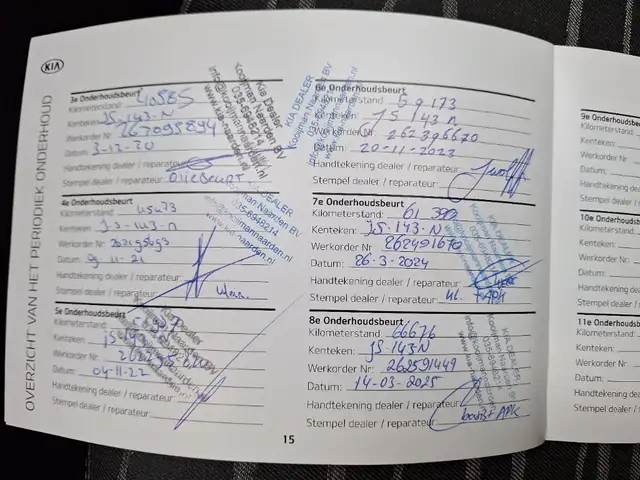 KIA
OVERZICHT VAN HET PERIODIEK ONDERHOUD
3e Onderhoudsbeurt
Kilometerstand: 40585
Kenteken: JS-143-N
Werkorder Nr: 262095894
Datum: 3-12-20
Handtekening dealer / reparateur:
Stempel dealer / reparateur: Oliebeurt
Kia Dealer
Kooijman Naarden BV
035-6948214
info@kooijmannaarden.nl
www.kia-naarden.nl
4e Onderhoudsbeurt
Kilometerstand:
Kenteken: JS-143-n
Werkorder Nr:
Datum: 9-11-21
Handtekening dealer / reparateur:
Stempel dealer / reparateur: klein
KIA DEALER
Kooijman Naarden BV
035-6948214
info@kooijmannaarden.nl
www.kia-naarden.nl
5e Onderhoudsbeurt
Kilometerstand:
Kenteken:
Werkorder Nr:
Datum: 04-11-22
Handtekening dealer / reparateur:
Stempel dealer / reparateur:
6e Onderhoudsbeurt
Kilometerstand: 59173
Kenteken: JS 143 n
Werkorder Nr: 262396670
Datum: 20-11-2023
Handtekening dealer / reparateur:
Stempel dealer / reparateur:
KIA DEALER
Kooijman Naarden BV
7e Onderhoudsbeurt
Kilometerstand: 61 390
Kenteken: JS-143-N
Werkorder Nr: 262491670
Datum: 26-3-2024
Handtekening dealer / reparateur:
Stempel dealer / reparateur: kl. + APK
8e Onderhoudsbeurt
Kilometerstand: 66676
Kenteken: JS-143-N
Werkorder Nr: 262591449
Datum: 14-03-2025
Handtekening dealer / reparateur:
Stempel dealer / reparateur: + APK
KIA DEALER
15
9e Onderhoud
Kilometerstand:
Kenteken:
Werkorder Nr:
Datum:
Handtekening d
Stempel dealer
10e Onderhou
Kilometerstand
Kenteken:
Werkorder Nr:
Datum:
Handtekening
Stempel deale
11e Onderho
Kilometerstan
Kenteken:
Werkorder N
Datum:
Handtekenin
Stempel dea